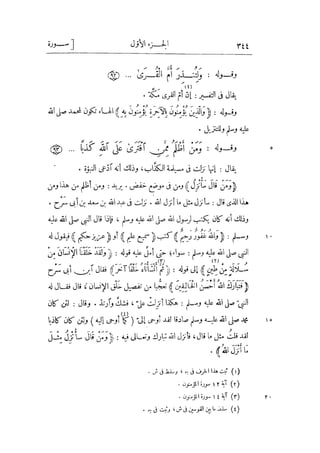 ٣٤٤ الجـــزء الأوّل [ ســـورة
وقـــوله : وَلِتُنـــذِرَ أُمَّ الْقُـــرَىٰ ... (٩٢)
يقال فى التفسير : إن (١) أُم القرى مَكَّة .
وقـــوله : ﴿ وَالَّذِينَ يُؤْمِنُونَ بِالْآخِرَةِ يُؤْمِنُونَ بِهِ ﴾ الهـاء تكون لمحمد صلى الله
عليه وسلم وللتنزيل .
٥ وقـــوله : وَمَنْ أَظْلَمُ مِمَّنِ افْتَرَىٰ عَلَى اللَّهِ كَذِبًا ... (٩٣)
يقال : إنها نزلت فى مسيلمة الكذّاب، وذلك أنه ٱدّعى النبوّة .
﴿ وَمَنْ قَالَ سَأُنْزِلُ ﴾ ومن فى موضع خفض . يريد : ومن أظلم من هذا ومن
هذا الذى قال : سأنزل مثل ما أنزل الله . نزلت فى عبد الله بن سعد بن أبى سَرْح .
وذلك أنه كان يكتب لرسول الله صلى الله عليه وسلم ، فإذا قال النبى صلى الله عليه
١٠ وسلم : ﴿ وَاللَّهُ غَفُورٌ رَحِيمٌ ﴾ كتب ﴿ سميع عليم ﴾ أو ﴿ عزيز حكيم ﴾ فيقول له
النبى صلى الله عليه وسلم : سواء؛ حتى أملّ عليه قوله : ﴿ وَلَقَدْ خَلَقْنَا الْإِنْسَانَ مِنْ
سُلَالَةٍ مِنْ طِينٍ ﴾ (٢) إلى قوله : ﴿ ثُمَّ أَنْشَأْنَاهُ خَلْقًا آخَرَ ﴾ (٣) فقال ٱبن أبى سرح
﴿ فَتَبَارَكَ اللَّهُ أَحْسَنُ الْخَالِقِينَ ﴾ تعجّبا من تفصيل خَلْق الإنسان ، قال فقـال له
النبىّ صلى الله عليه وسلم : هكذا أنزلتْ علىّ ، فشكّ وٱرتدّ . وقال : لئن كان
١٥ محمد صلى الله عليـه وسلم صادقا لقد أوحى إلىّ ﴿ كما (٤) أوحى إليه ﴾ ولئن كان كاذبا
لقد قلت مثل ما قال ، فأنزل الله تبارك وتعـالى فيه : ﴿ وَمَنْ قَالَ سَأُنْزِلُ مِثْـلَ
مَا أَنْزَلَ اللَّهُ ﴾ .
(١) ثبت هذا الحرف فى ج ، وسقط فى ش .
(٢) آية ١٢ سورة المؤمنون .
٢٠ (٣) آية ١٤ سورة المؤمنون .
(٤) سقط ما بين القوسين فى ش ، وثبت فى ج .